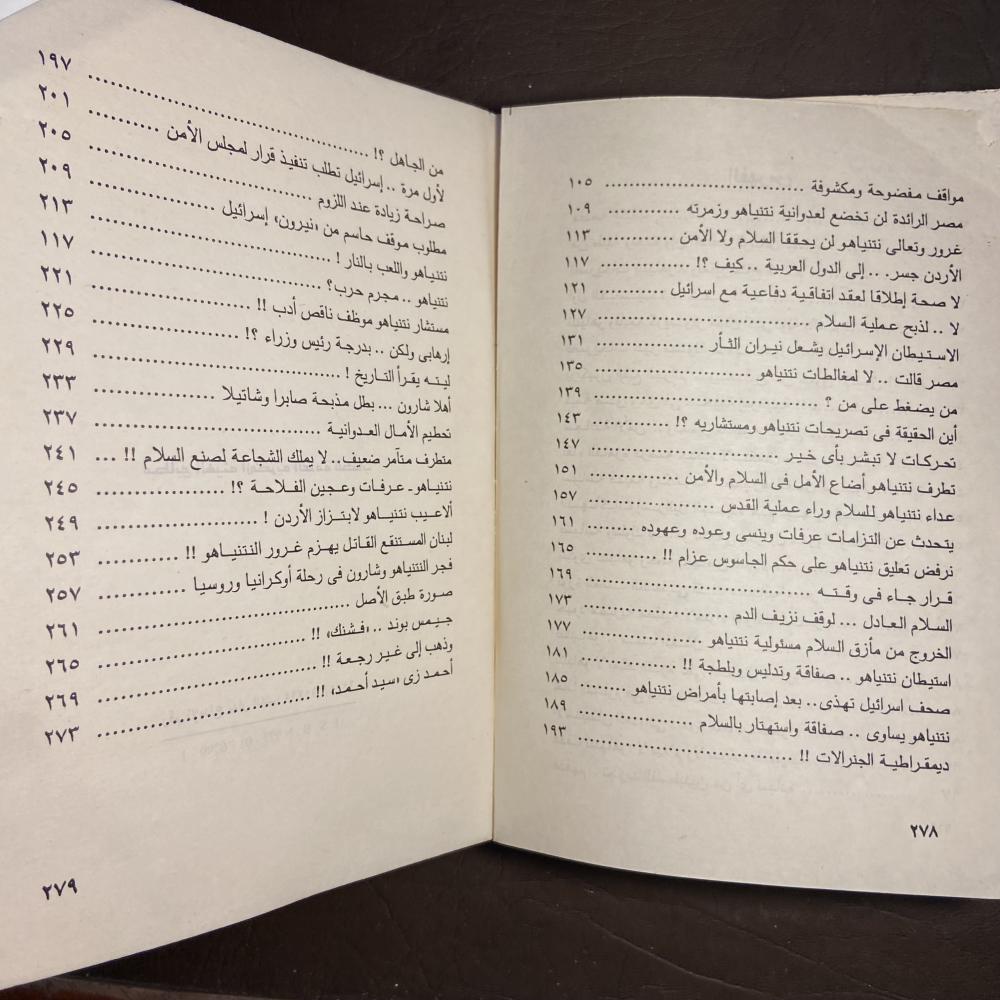 مواقف مفضوحة ومكشوفة ........ ١٠٥
مصر الرائدة لن تخضع لعدوانية نتنياهو وزمرته ........ ١٠٩
غرور وتعالى نتنياهو لن يحققا السلام ولا الأمن ........ ١١٣
الأردن جسر. .. إلى الدول العربية .. كيف ؟! ........ ١١٧
لا صحة إطلاقا لعقد اتفاقية دفاعية مع اسرائيل ........ ١٢١
لا .. لذبح عملية السلام ........ ١٢٧
الاستيطان الإسرائيل يشعل نيران الثأر ........ ١٣١
مصر قالت .. لا لمغالطات نتنياهو ........ ١٣٥
من يضغط على من ؟ ........ ١٣٩
أين الحقيقة فى تصريحات نتنياهو ومستشاريه ؟! ........ ١٤٣
تحركات لا تبشر بأى خير ........ ١٤٧
تطرف نتنياهو أضاع الأمل فى السلام والأمن ........ ١٥١
عداء نتنياهو للسلام وراء عملية القدس ........ ١٥٧
يتحدث عن التزامات عرفات وينسى وعوده وعهوده ........ ١٦١
نرفض تعليق نتنياهو على حكم الجاسوس عزام !! ........ ١٦٥
قرار جاء فى وقته ........ ١٦٩
السلام العادل ... لوقف نزيف الدم ........ ١٧٣
الخروج من مأزق السلام مسئولية نتنياهو ........ ١٧٧
استيطان نتنياهو .. صفاقة وتدليس وبلطجة !! ........ ١٨١
صحف اسرائيل تهذى.. بعد إصابتها بأمراض نتنياهو ........ ١٨٥
نتنياهو يساوى .. صفاقة واستهتار بالسلام ........ ١٨٩
ديمقراطية الجنرالات !! ........ ١٩٣
٢٧٨
من الجاهل ؟! ........ ١٩٧
لأول مرة .. إسرائيل تطلب تنفيذ قرار لمجلس الأمن ........ ٢٠١
صراحة زيادة عند اللزوم ........ ٢٠٥
مطلوب موقف حاسم من «نيرون» إسرائيل ........ ٢٠٩
نتنياهو واللعب بالنار ! ........ ٢١٣
نتنياهو .. مجرم حرب؟ ........ ١١٧
مستشار نتنياهو موظف ناقص أدب !! ........ ٢٢١
إرهابى ولكن .. بدرجة رئيس وزراء ؟! ........ ٢٢٥
ليته يقرأ التاريخ ! ........ ٢٢٩
أهلا شارون ... بطل مذبحة صابرا وشاتيلا ........ ٢٣٣
تحطيم الأمال العدوانية ........ ٢٣٧
متطرف متآمر ضعيف.. لا يملك الشجاعة لصنع السلام !! ... ٢٤١
نتنياهو ـ عرفات وعجين الفلاحة ؟! ........ ٢٤٥
ألاعيب نتنياهو لابتزاز الأردن ! ........ ٢٤٩
لبنان المستنقع القاتل يهزم غرور النتنياهو !! ........ ٢٥٣
فجر النتنياهو وشارون فى رحلة أوكرانيا وروسيا ........ ٢٥٧
صورة طبق الأصل ........ ٢٦١
جيمس بوند .. «فشنك» !! ........ ٢٦٥
وذهب إلى غير رجعة !! ........ ٢٦٩
أحمد زى «سيد أحمد» !! ........ ٢٧٣
٢٧٩